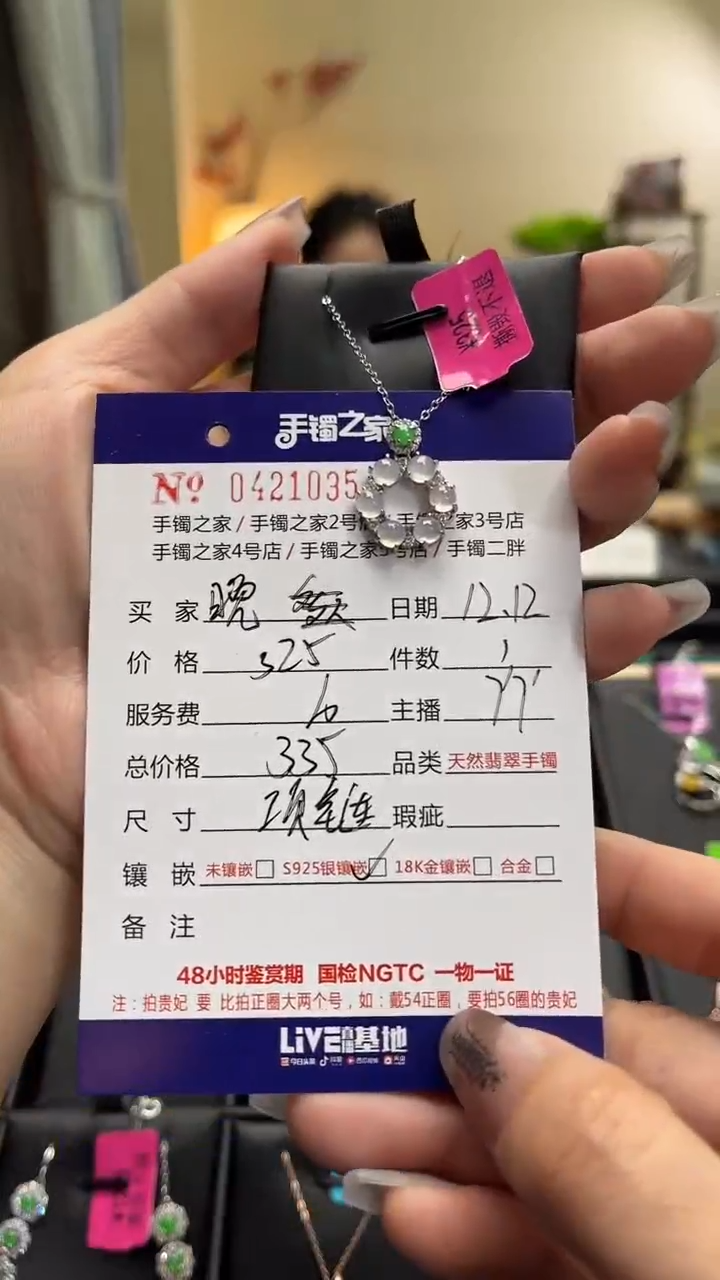 手镯之家
No 0421035
手镯之家 / 手镯之家2号店 / 手镯之家3号店
手镯之家4号店 / 手镯之家5号店 / 手镯二胖
买 家 晚 日期 12.12
价 格 325 件数 1
服务费 10 主播 YY
总价格 335 品类 天然翡翠手镯
尺 寸 项链 瑕疵
镶 嵌 未镶嵌□ S925银镶嵌☑ 18K金镶嵌□ 合金□
备 注
48小时鉴赏期 国检NGTC 一物一证
注：拍贵妃 要 比拍正圈大两个号，如：戴54正圈，要拍56圈的贵妃
LiVE直播基地
今日头条 抖音 西瓜视频 火山